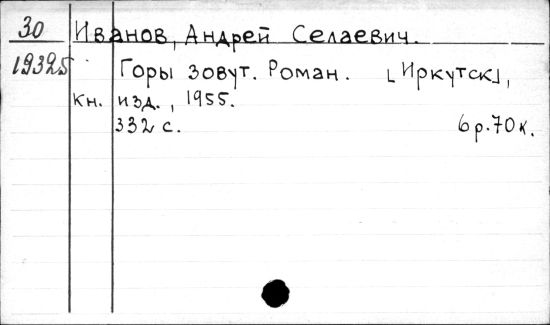 30 Иванов, Андрей Селаевич.
19325 Горы зовут. Роман. [Иркутск],
кн. изд., 1955.
332 с. 6р.70к.